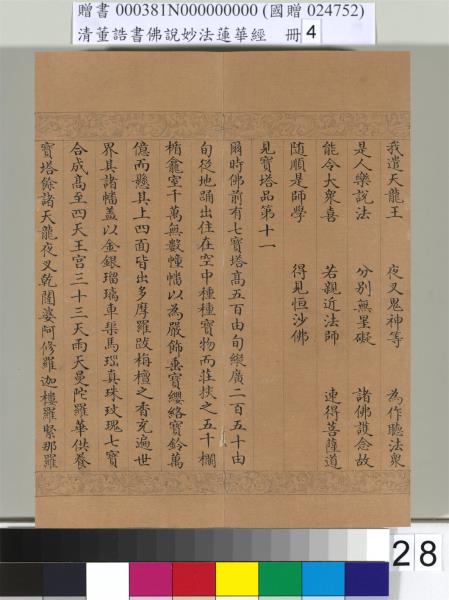 贈書 000381N000000000 (國贈 024752)
清董誥書佛說妙法蓮華經 冊 4
我遣天龍王 夜叉鬼神等 為作聽法衆
是人樂說法 分別無罣礙 諸佛護念故
能令大衆喜 若親近法師 速得菩薩道
随順是師學 得見恒沙佛
見寶塔品第十一
爾時佛前有七寶塔高五百由旬縱廣二百五十由
旬從地踊出住在空中種種寶物而莊挍之五千欄
楯龕室千萬無數幢幡以為嚴飾垂寶纓絡寶鈴萬
億而懸其上四面皆出多摩羅跋栴檀之香充遍世
界其諸幡蓋以金銀瑠璃車𤦲馬瑙真珠玫瑰七寶
合成高至四天王宮三十三天雨天曼陀羅華供養
寶塔餘諸天龍夜叉乾闥婆阿修羅迦樓羅緊那羅
28